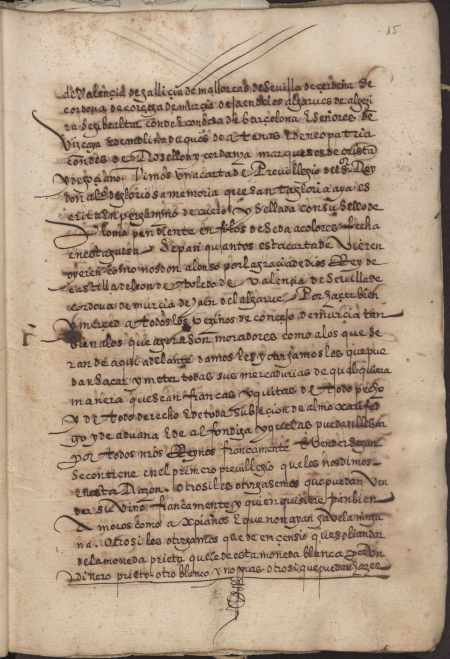 15
de Valencia de gallizia de mallorcas de Sevilla de cerdeña de
cordova de corcega de murcia de jaen de los algarves de algezi
ra de gibraltar conde e condesa de barcelona E Señores de
Vizcaya e de molina duques de atenas E de neopatria
condes de Rosellon y cerdania marqueses de oristan
y de goçiano. Vimos una carta de Previllegio del Rey
don alonso de gloriosa memoria que santa gloria aya es
crita en pergamino de cuero y sellada con su sello de
plomo pendiente en filos de seda a colores fecha
en esta guisa Sepan quantos esta carta Vieren
oyeren como nos don alonso por la gracia de dios Rey de
castilla de leon de Toledo de Valencia de Sevilla de
cordova de murcia de jaen del algarve Por hazer bien
y merced a todos los vezinos de concejo de murcia tan
bien a los que agora son moradores como a los que se
ran de aqui adelante damosles y otorgamosles que pue
dan sacar y meter todas sus mercadurias de qualquiera
manera que sean francas y quitas de todo pecho
y de todo derecho E de toda subjecion de almoxarifad
go y de aduana E de alfondiga y que las puedan llevar
por todos nros Reynos francamente E Vender segun
se contiene en el primero previllegio que les nos dimos
en esta Razon. Otrosi les otorgasemos que puedan Ven
der su vino francamente y quien quisiere tanbien
a moros como a xpianos E que non ayan gavela ningu
na. Otrosi les otorgamos que de en censio que
de la moneda prieta que le de esta moneda blanca por un
Dinero prieto otro blanco y no mas otrosi que puedan hazer